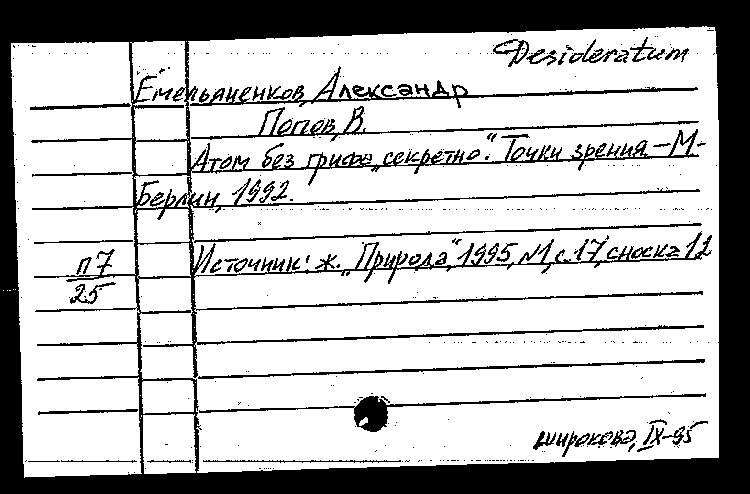 Desideratum
Емельяненков, Александр
Попов, В.
Атом без грифа „секретно“. Точки зрения. – М. -
Берлин, 1992.
п7
25
Источник: ж. „Природа“, 1995, №1, с. 17, сноска 12
Широкова, IX-95